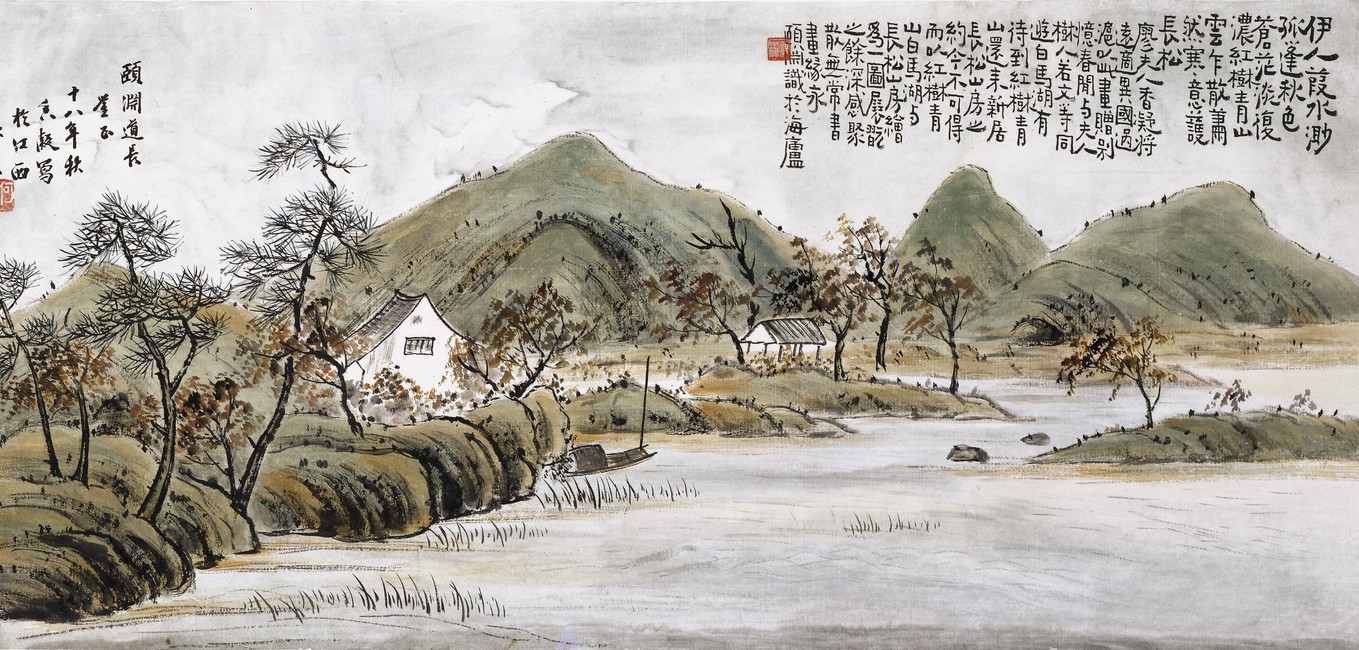 伊人葭水渺
孤篷秋色
蒼茫淡復
濃紅樹青山
雲乍散蕭
然寒意護
長松
廖夫人香凝將
遠適異國過
滬以此畫贈別
憶春間与夫人
樹人若文等同
遊白馬湖有
待到紅樹青
山還来新居
長松山房之
約今不可得
而以紅樹青
山白馬湖与
長松山房繪
爲一圖展翫
之餘深感聚
散無常書
畫緣永
頤淵識於海廬
頤淵道長
鑒正
十八年秋
香凝寫
於江西
何